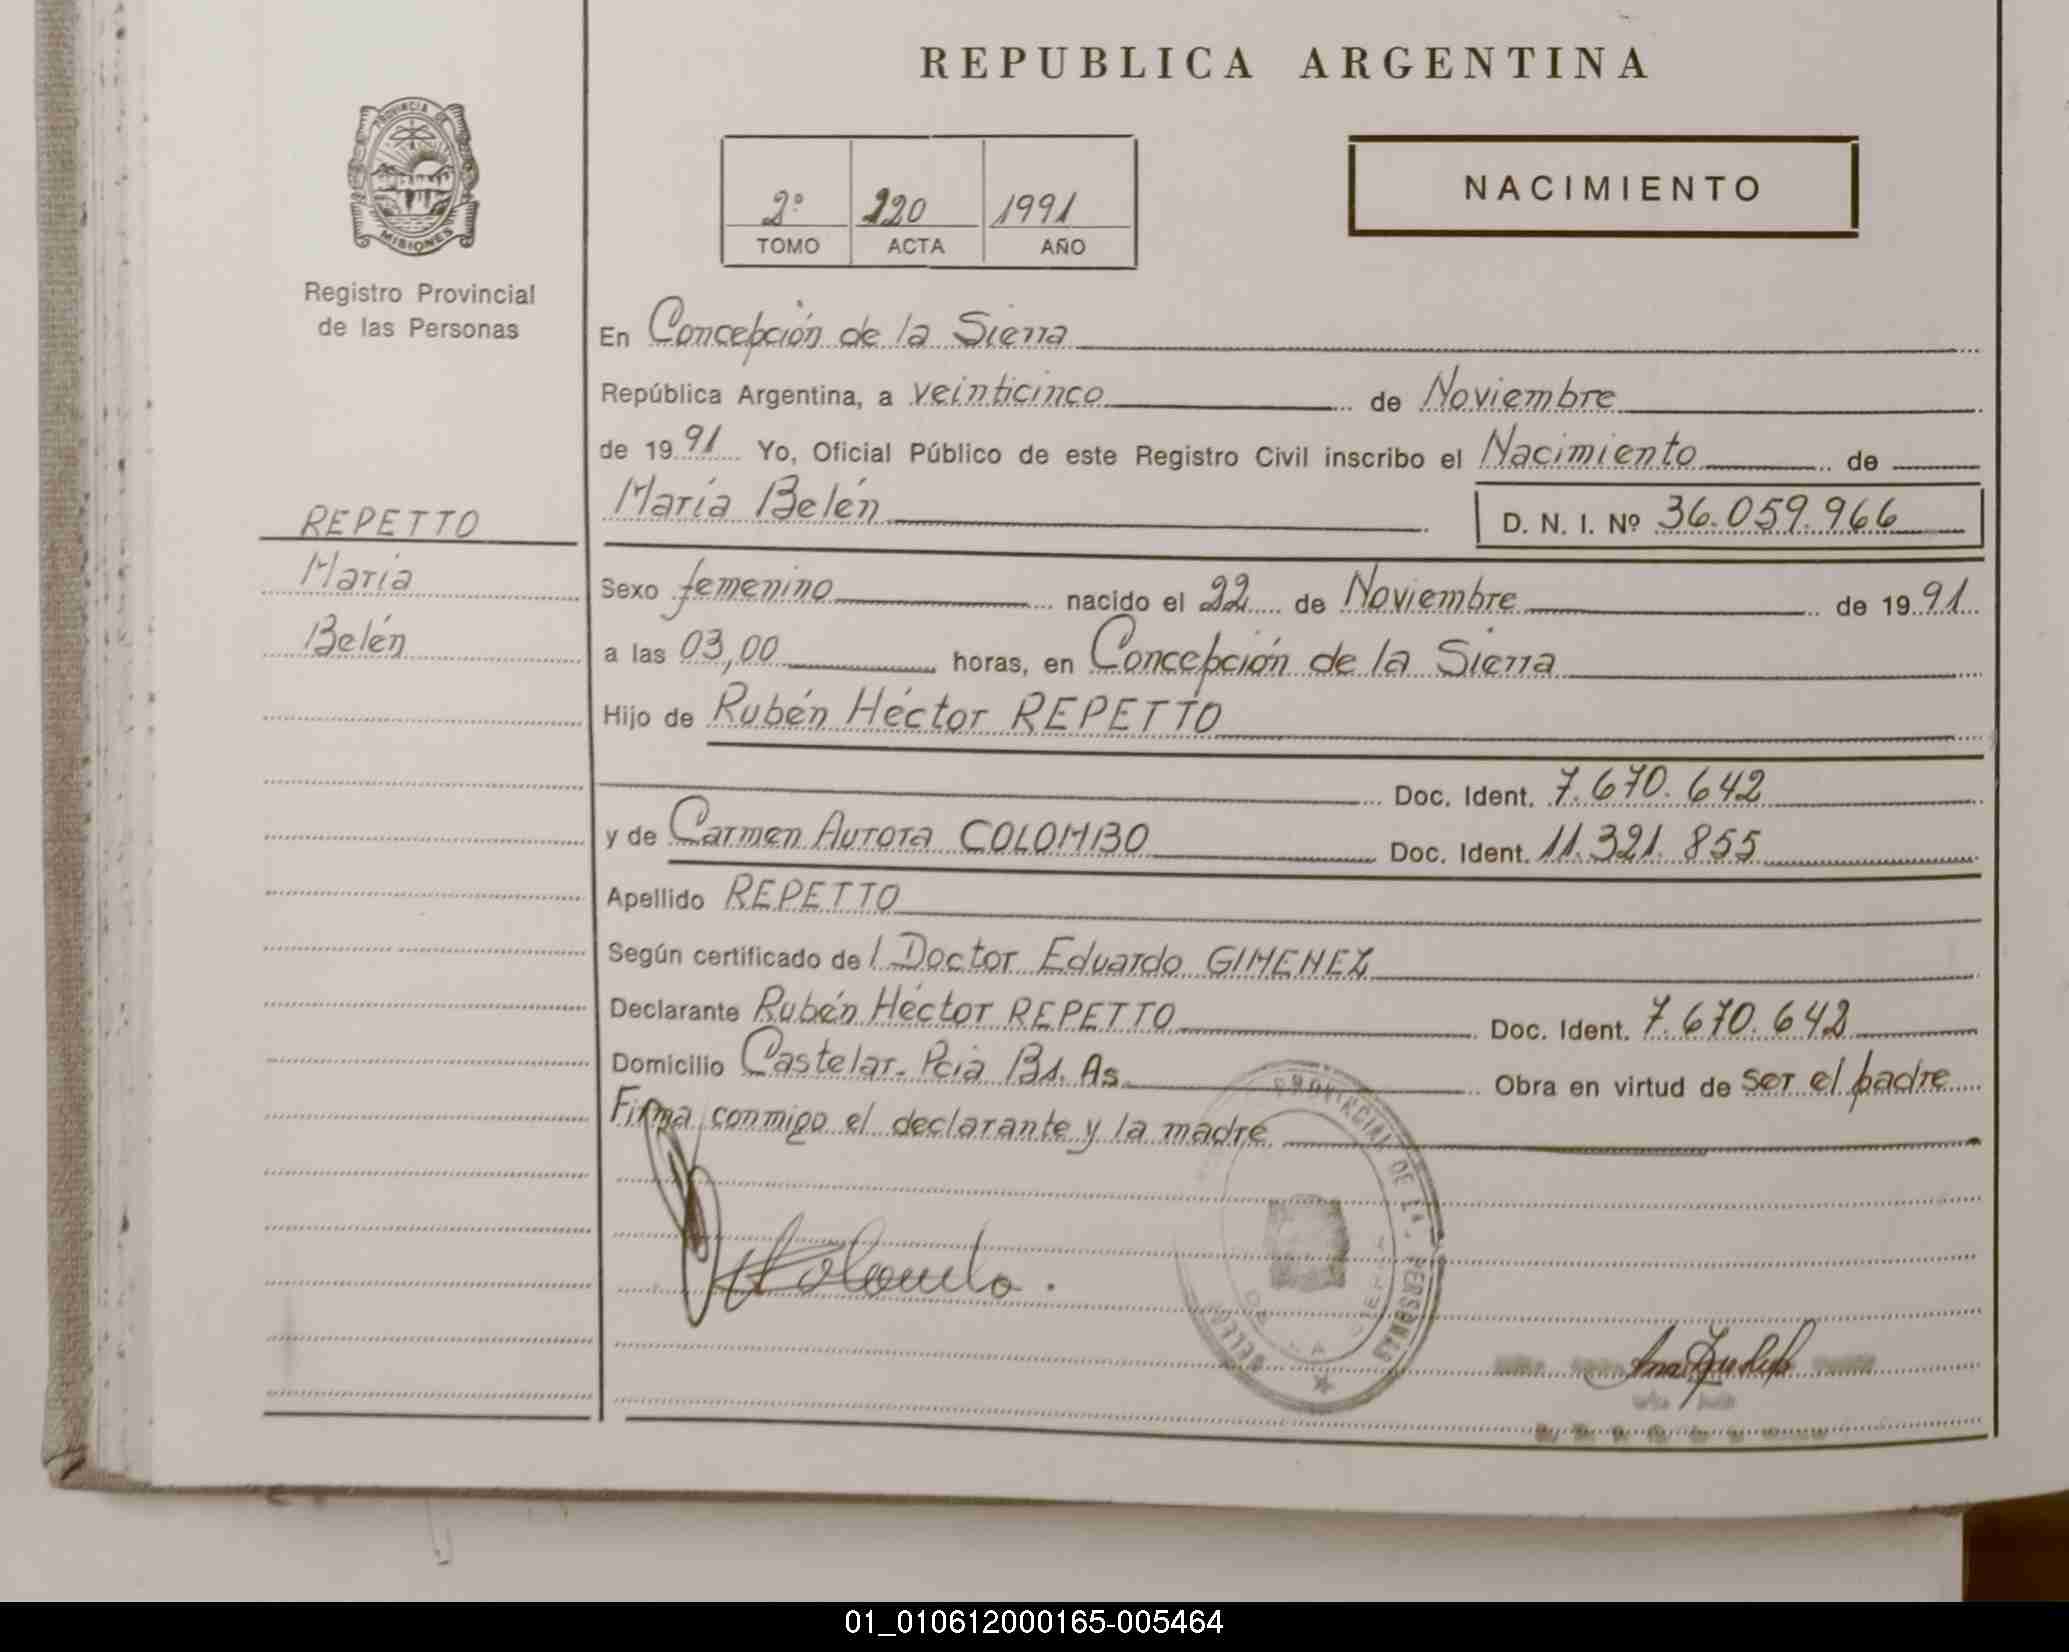 REPUBLICA ARGENTINA
PROVINCIA DE
MISIONES
Registro Provincial
de las Personas
2º 220 1991
TOMO ACTA AÑO
NACIMIENTO
En Concepción de la Sierra
República Argentina, a veinticinco de Noviembre
de 1991 Yo, Oficial Público de este Registro Civil inscribo el Nacimiento de
María Belén D. N. I. Nº 36.059.966
REPETTO
María
Belén
Sexo femenino nacido el 22 de Noviembre de 1991
a las 03,00 horas, en Concepción de la Sierra
Hijo de Rubén Héctor REPETTO
Doc. Ident. 7.670.642
y de Carmen Aurora COLOMBO Doc. Ident. 11.321.855
Apellido REPETTO
Según certificado del Doctor Eduardo GIMENEZ
Declarante Rubén Héctor REPETTO Doc. Ident. 7.670.642
Domicilio Castelar. Pcia Bs. As. Obra en virtud de ser el padre
Firma conmigo el declarante y la madre
PROVINCIAL DE LAS PERSONAS
01_010612000165-005464